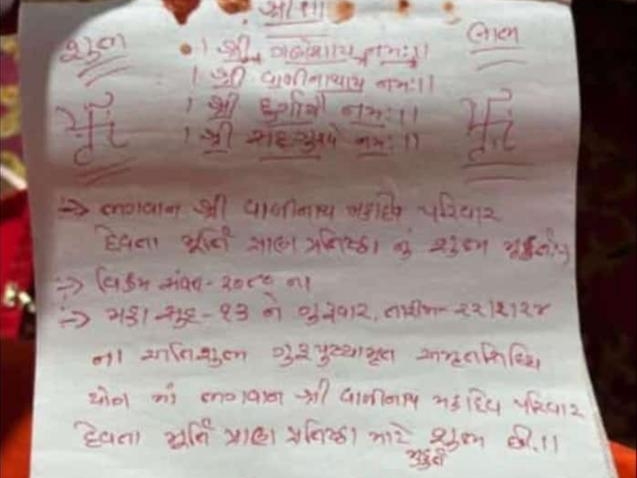 શ્રી ૧ાા
શુભ લાભ
। શ્રી ગણેશાય નમઃ।।
। શ્રી વાળીનાથાય નમઃ।।
। શ્રી દુર્ગાયૈ નમઃ।।
। શ્રી સદગુરુવે નમઃ।।
=> ભગવાન શ્રી વાળીનાથ મહાદેવ પરિવાર
દેવતા મૂર્તિ પ્રાણ પ્રતિષ્ઠા નું શુભ મૂહુર્ત
=> વિક્રમ સંવત - ૨૦૮૦ ના
=> મહા સુદ - ૧૩ ને ગુરૂવાર, તારીખ - ૨૨।૨।૨૪
ના અતિશુભ ગુરૂપુષ્યામૃત અમૃતસિધ્ધિ
યોગ માં ભગવાન શ્રી વાળીનાથ મહાદેવ પરિવાર
દેવતા મૂર્તિ પ્રાણ પ્રતિષ્ઠા માટે શુભ છે.।।
મુહુર્ત